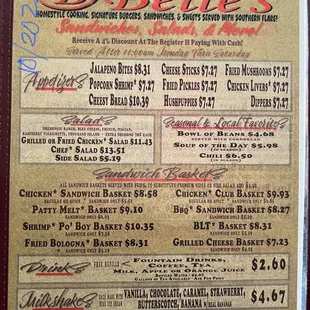 Belle's
HOMESTYLE COOKING, SIGNATURE BURGERS, SANDWICHES, & SWEETS SERVED WITH SOUTHERN FLARE!
Sandwiches, Salads, & More!
Receive A 4% Discount At The Register If Paying With Cash!
Served After 10:00am Monday Thru Saturday
Appetizers
Jalapeno Bites $8.31
Popcorn Shrimp* $7.27
Cheesy Bread $10.39
Cheese Sticks $7.27
Fried Pickles $7.27
Hushpuppies $7.27
Fried Mushrooms $7.27
Chicken Livers* $7.27
Dippers $7.27
Salads
Grilled or Fried Chicken* Salad $11.43
Chef* Salad $13.51
Side Salad $5.19
Seasonal & Local Favorites
Bowl of Beans $4.68
SERVED WITH CORNBREAD
Soup of the Day $5.98
Chili $6.50
Sandwich Baskets
Chicken* Sandwich Basket $8.58
Patty Melt* Basket $9.10
Shrimp* Po' Boy Basket $10.35
Fried Bologna* Basket $8.31
Chicken* Club Basket $9.93
BBQ* Sandwich Basket $8.27
BLT* Basket $8.31
Grilled Cheese Basket $7.23
Drinks
FREE REFILLS
Fountain Drinks,
Coffee, Tea
Milk, Apple or Orange Juice
$2.60
Milkshakes
Vanilla, Chocolate, Caramel, Strawberry,
Butterscotch, Banana
$4.67